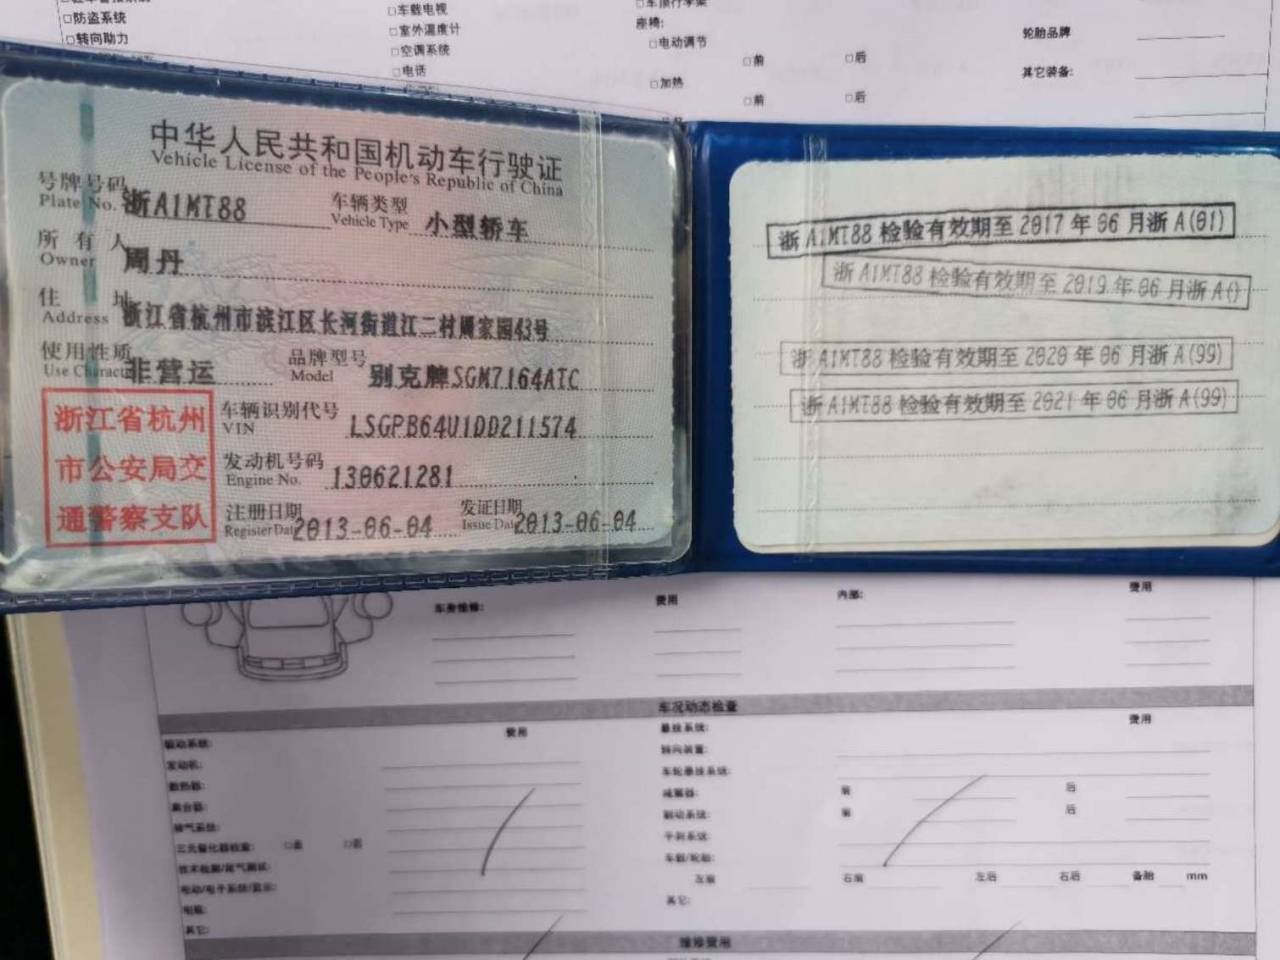 □防盗系统
□转向助力
□车载电视
□室外温度计
□空调系统
□电话
座椅:
□电动调节
□前
□后
□加热
□前
□后
轮胎品牌
其它装备:
中华人民共和国机动车行驶证
Vehicle License of the People's Republic of China
号牌号码 浙A1MT88 车辆类型 小型轿车
Plate No. Vehicle Type
所有人 周丹
Owner
住址 浙江省杭州市滨江区长河街道江二村周家园43号
Address
使用性质 非营运 品牌型号 别克牌SGM7164ATC
Use Character Model
浙江省杭州
市公安局交
通警察支队
车辆识别代号 LSGPB64U1DD211574
VIN
发动机号码 130621281
Engine No.
注册日期 2013-06-04 发证日期 2013-06-04
Register Date Issue Date
浙A1MT88检验有效期至2017年06月浙A(01)
浙A1MT88检验有效期至2019年06月浙A()
浙A1MT88检验有效期至2020年06月浙A(99)
浙A1MT88检验有效期至2021年06月浙A(99)
车身维修: 费用 内部: 费用
车况动态检查
驱动系统: 费用 悬挂系统: 费用
发动机: 转向装置:
散热器: 车轮悬挂系统:
离合器: 减震器: 前 后
排气系统: 制动系统: 前 后
三元催化器检查: □是 □否 手刹系统:
技术检测/尾气测试: 车毂/轮胎:
电动/电子系统/显示: 左前 右前 左后 右后 备胎 mm
电瓶: 其它:
其它:
维修费用